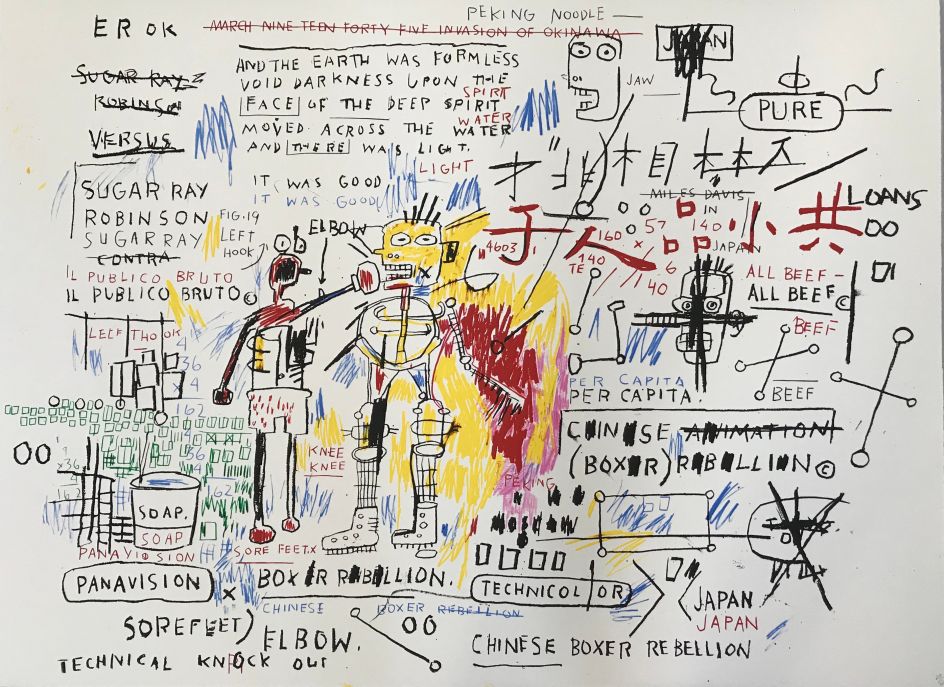 PEKING NOODLE
ER OK
MARCH NINE TEEN FORTY FIVE INVASION OF OKINAWA
JAPAN
SUGAR RAY
ROBINSON
VERSUS
AND THE EARTH WAS FORMLESS
VOID DARKNESS UPON THE
SPIRIT
FACE OF THE DEEP SPIRIT
WATER
MOVED ACROSS THE WATER
AND THERE WAS LIGHT.
LIGHT
JAW
PURE
IT WAS GOOD
IT WAS GOOD
SUGAR RAY
ROBINSON
SUGAR RAY
CONTRA
IL PUBLICO BRUTO
IL PUBLICO BRUTO©
FIG. 19
LEFT
HOOK
ELBOW
MILES DAVIS
IN
JAPAN
LOANS
OO
"4603"
160
57
140
x
6
140
TE
40
ALL BEEF-
ALL BEEF©
BEEF
BEEF
LELF THOOK
4
36
x 4
162
4
PER CAPITA
PER CAPITA.
CHINESE ANIMATION
(BOXER) REBELLION ©
OO
x36
162
162
KNEE
KNEE
PEKING
MOSCOW
SOAP.
SOAP
PANAVISION
SORE FEET.X
PANAVISION
x
BOXER REBELLION.
TECHNICOLOR
CHINESE BOXER REBELLION
JAPAN
JAPAN
SOREFEET)
ELBOW.
OO
TECHNICAL KNOCK OUT
CHINESE BOXER REBELLION